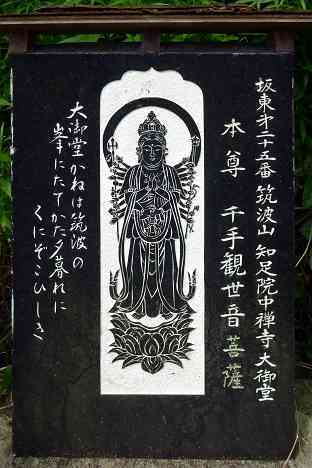 坂東才二十五番 筑波山 知足院中禅寺 大御堂
本尊 千手観世音菩薩
大御堂かねは筑波の
峯にたてかた夕暮れに
くにぞこひしき